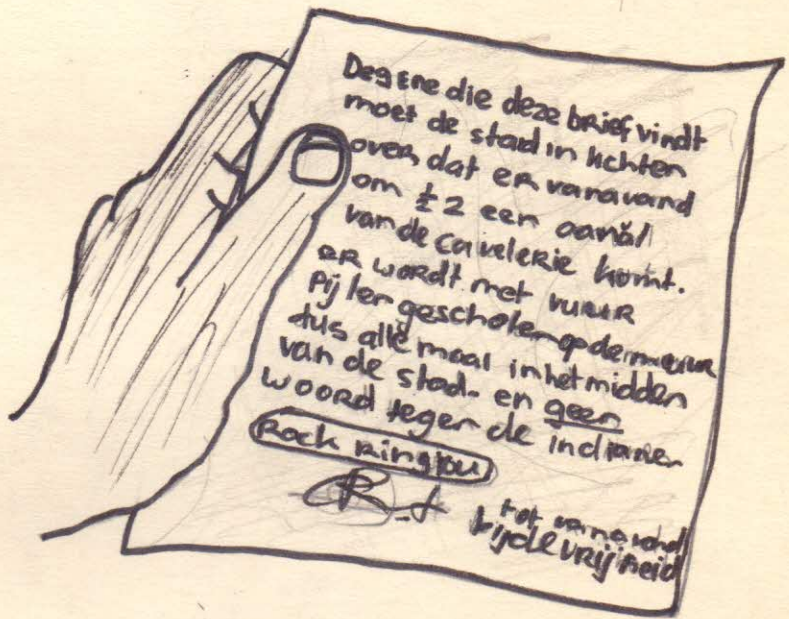 Degene die deze brief vindt
moet de stad in lichten
over dat er vanavand
om ± 2 een aanval
van de cavelerie komt.
ER wordt met vuur
Pijlen geschoten op de muur
dus alle maal in het midden
van de stad. en geen
woord tegen de indianen
Rock
tot vanavond
bij de vrijheid